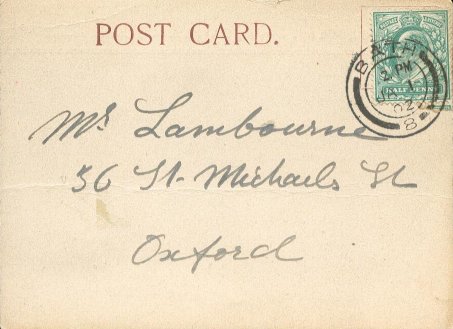 POST CARD.
BATH
2 PM
02
8
HALF PENNY
Mr Lambourne
36 St. Michaels St
Oxford